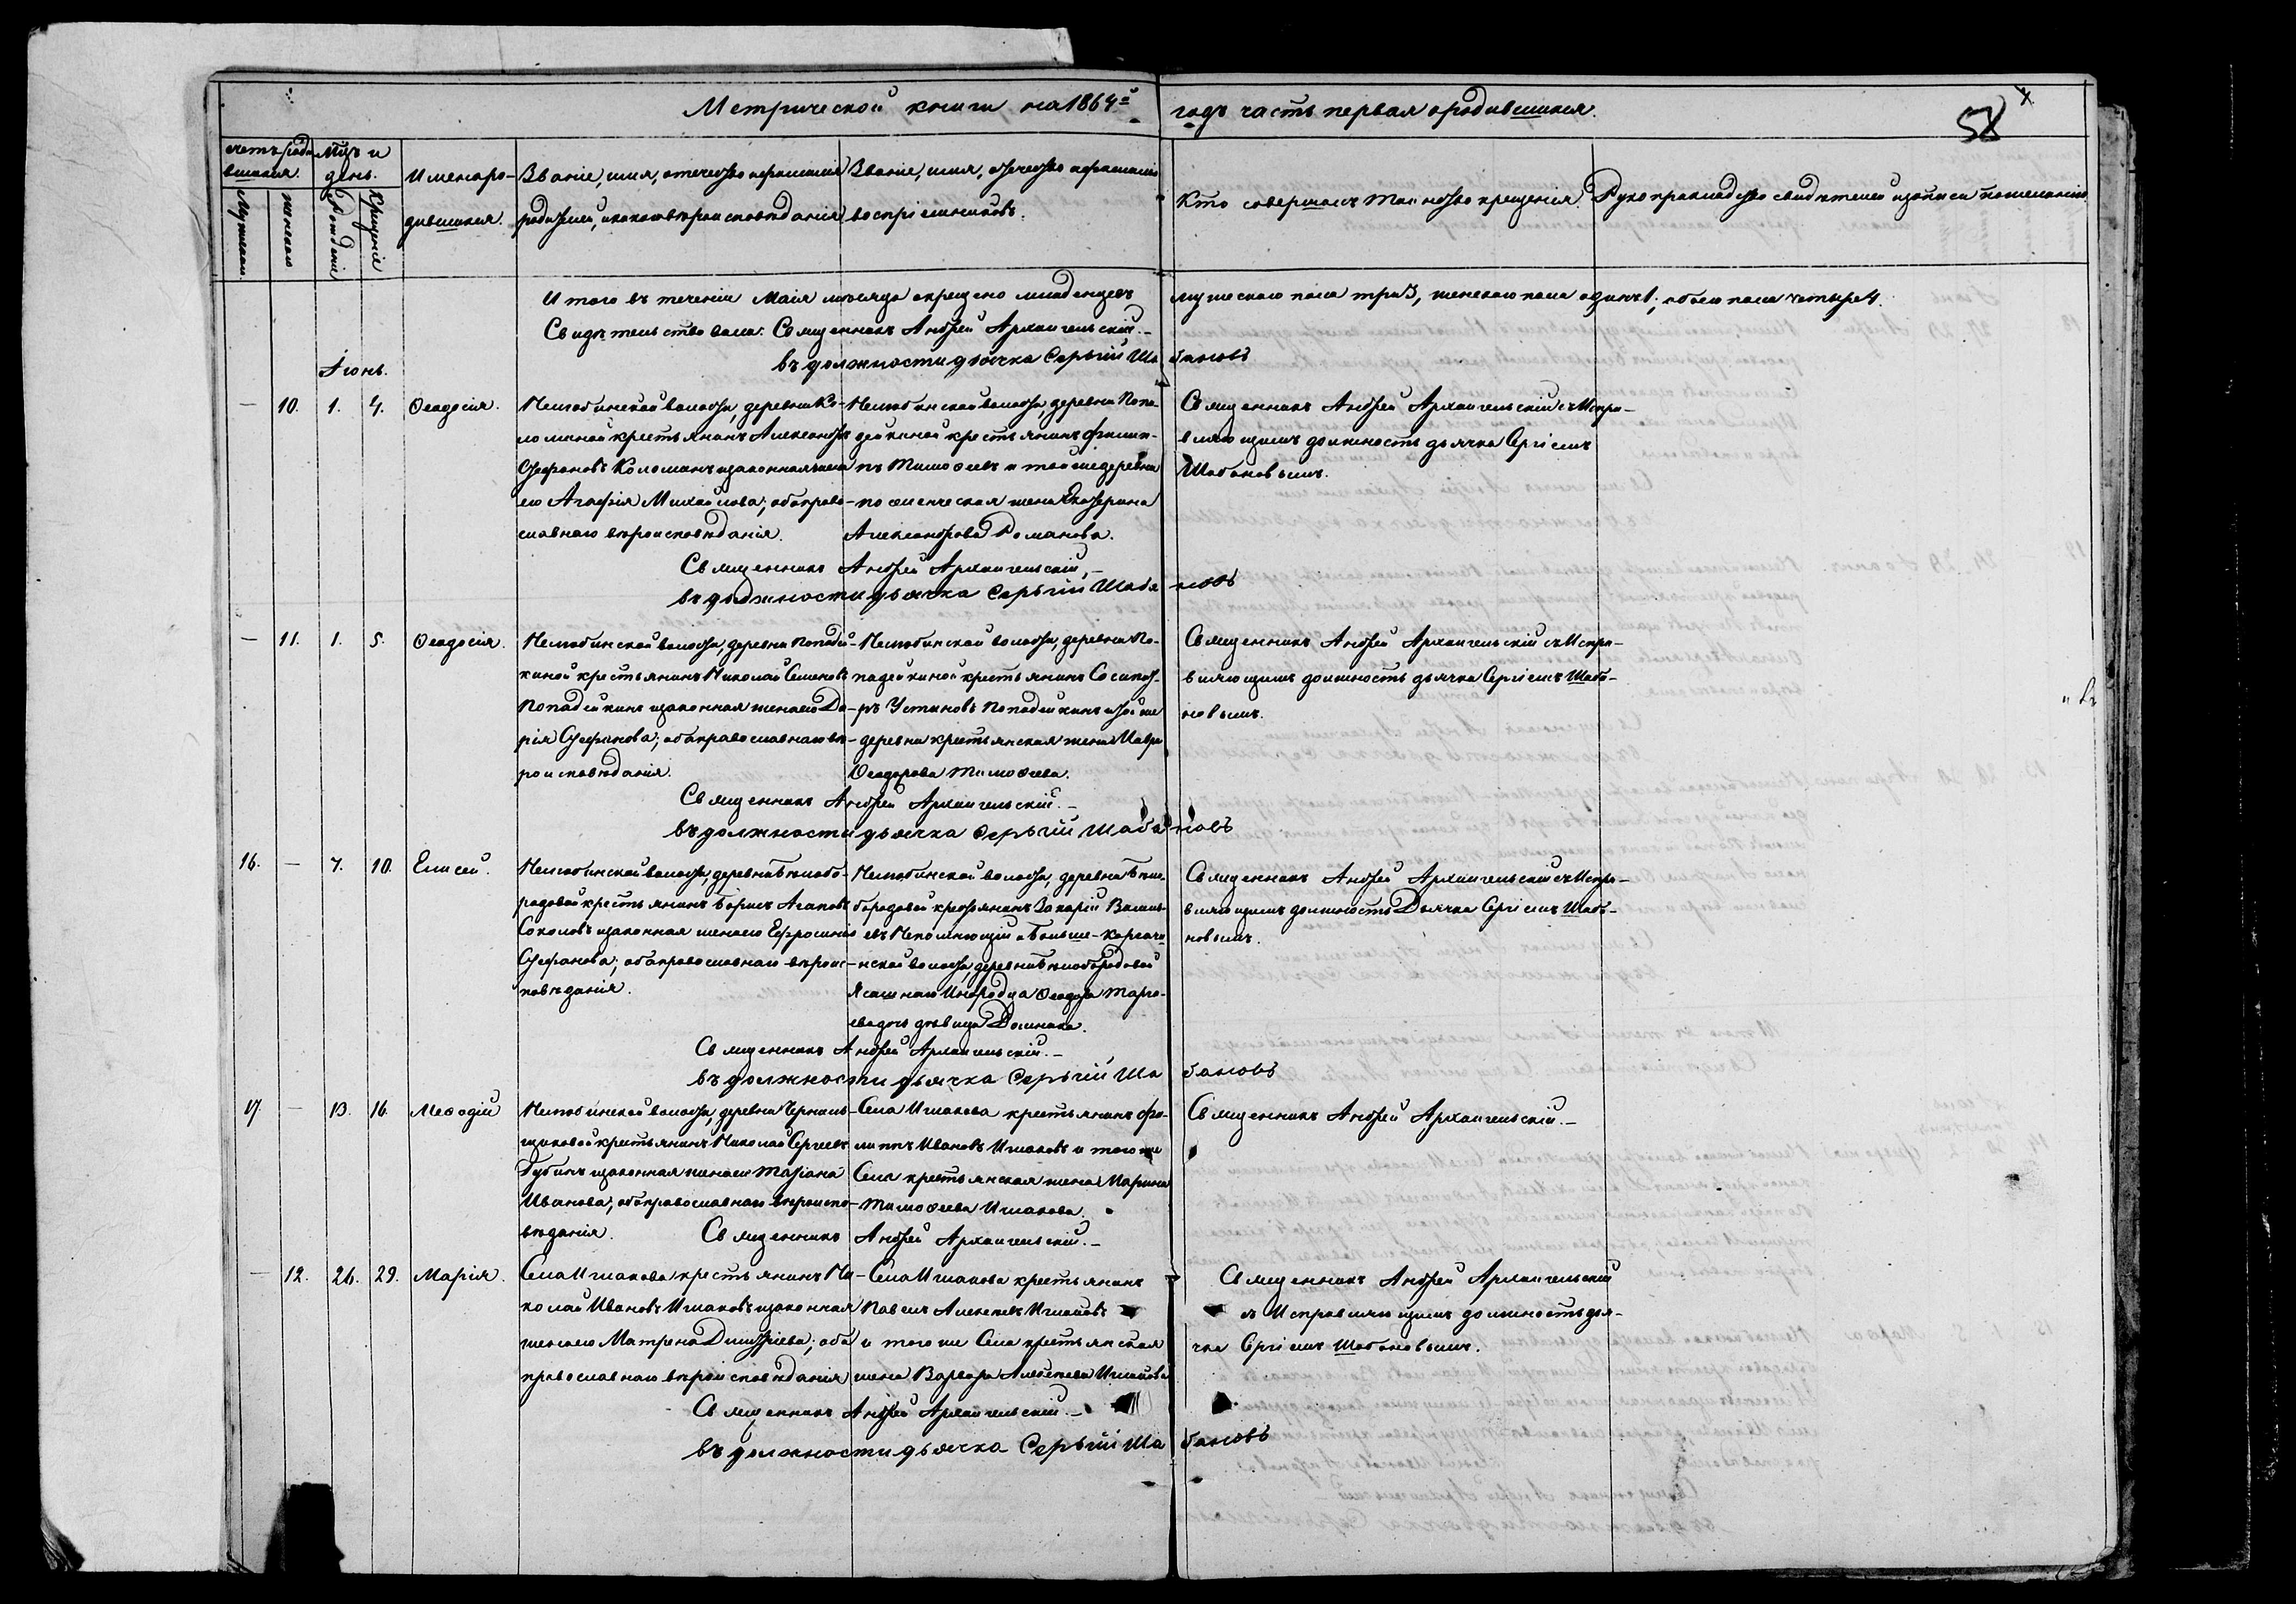 Метрической книги на 1864й годъ часть первая о родившихся.
58
Счетъ родившихся.
Мужескаго
женскаго
Мцъ и день.
Рожденіе
Крещеніе
Имена ро-
дившихся.
Званіе, имя, отчество и фамилія
родителей, и какого вѣроисповѣданія
Званіе, имя, отчество и фамилія
воспріемниковъ.
Кто совершалъ таинство крещенія.
Рукоприкладство свидѣтелей записи по желанію
Итого въ теченіи Маія мѣсяца окрещено младенцевъ мужескаго пола три 3, женскаго пола одинъ 1; обоего пола четыре 4.
Свидѣтельствовали: Священникъ Андрей Архангельскій.–
въ должности дьячка Сергій Шабановъ
Іюнь.
— 10. 1. 4. Ѳеодосія.
волости, деревни Ко-
ломиной крестьянинъ Александръ
Стефановъ Коломинъ и законная жена
его Агафія Михайлова; оба право-
славнаго вѣроисповѣданія.
волости, деревни Попа-
дейкиной крестьянинъ Филип-
пъ Тимоѳеевъ и той же деревни
жена Екатерина
Александрова Романова.
Священникъ Андрей Архангельскій съ Испра-
вляющимъ должность дьячка Сергіемъ
Шабановымъ.
Священникъ Андрей Архангельскій,–
въ должности дьячка Сергій Шабановъ
— 11. 1. 5. Ѳеодосія.
волости, деревни Попадей-
киной крестьянинъ Николай Семеновъ
Попадейкинъ и законная жена его Да-
рія Стефанова; оба православнаго вѣ-
роисповѣданія.
волости, деревни По-
падейкиной крестьянинъ Сосипат-
ръ Устиновъ Попадейкинъ и той же
деревни крестьянская жена Мавра
Ѳеодорова Тимоѳеева.
Священникъ Андрей Архангельскій съ Испра-
вляющимъ должность дьячка Сергіемъ Шаба-
новымъ.
Священникъ Андрей Архангельскій.–
въ должности дьячка Сергій Шабановъ
16. — 7. 10. Елисей.
волости, деревни Бѣлобо-
родовой крестьянинъ Борисъ Агаповъ
Соколовъ и законная жена его Ефросинія
Стефанова; оба православнаго вѣроис-
повѣданія.
волости, деревни Бѣло-
бородовой крестьянинъ Захарій Василь-
евъ Непомнющій и
волости, деревни Бѣлобородовой
Ясашнаго Инородца Ѳеодора
дочь дѣвица Домника.
Священникъ Андрей Архангельскій съ Испра-
вляющимъ должность Дьячка Сергіемъ Шаба-
новымъ.
Священникъ Андрей Архангельскій.–
въ должности дьячка Сергій Шабановъ
17. — 13. 16. Меѳодій
волости, деревни Черниль-
щиковой крестьянинъ Николай Сергеевъ
Губинъ и законная жена его Татіана
Иванова; оба православнаго вѣроиспо-
вѣданія.
Села Ишакова крестьянинъ Фи-
липпъ Ивановъ Ишаковъ и того же
Села крестьянская жена Марина
Тимоѳеева Ишакова.
Священникъ Андрей Архангельскій.–
Священникъ Андрей Архангельскій.–
— 12. 26. 29. Марія.
Села Ишакова крестьянинъ Ни-
колай Ивановъ Ишаковъ и законная
жена его Матрена Димитріева; оба
православнаго вѣроисповѣданія
Села Ишакова крестьянинъ
Павелъ Алексѣевъ Ишаковъ
и того же Села крестьянская
жена Варвара Алексѣева Ишакова
Священникъ Андрей Архангельскій
съ Исправляющимъ должность дья-
чка Сергіемъ Шабановымъ.
Священникъ Андрей Архангельскій.–
въ должности дьячка Сергій Шабановъ